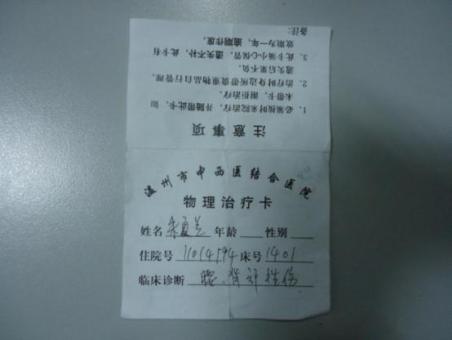 注意事项
1、必须按时来院治疗，并随带此卡，如
未带卡，谢拒治疗。
2、治疗时身边带贵重物品自行管理，
遗失后果不负。
3、此卡须小心保管，遗失不补，此卡有
效期为一年，逾期作废。
备注：
温州市中西医结合医院
物理治疗卡
姓名 年龄 性别
住院号 11014594 床号 1401
临床诊断 腰、背部挫伤